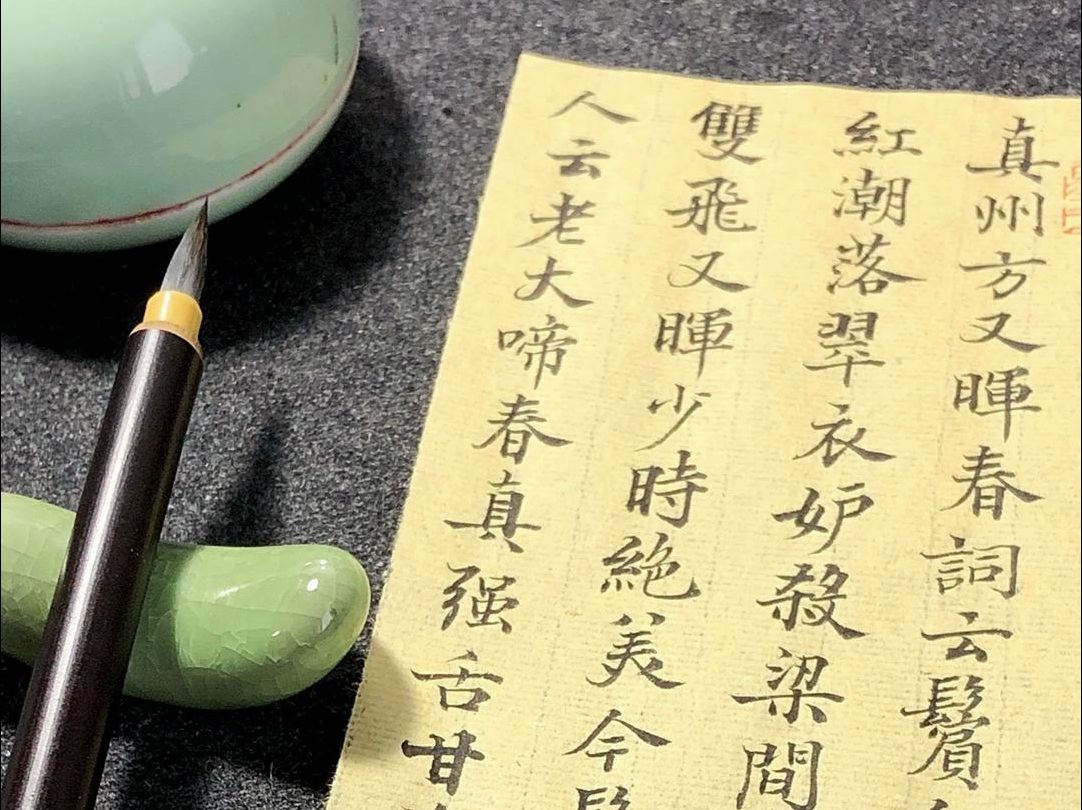 真州方又暉春詞云鬢
紅潮落翠衣妒殺梁間
雙飛又暉少時絕美今
人云老大啼春真强舌甘